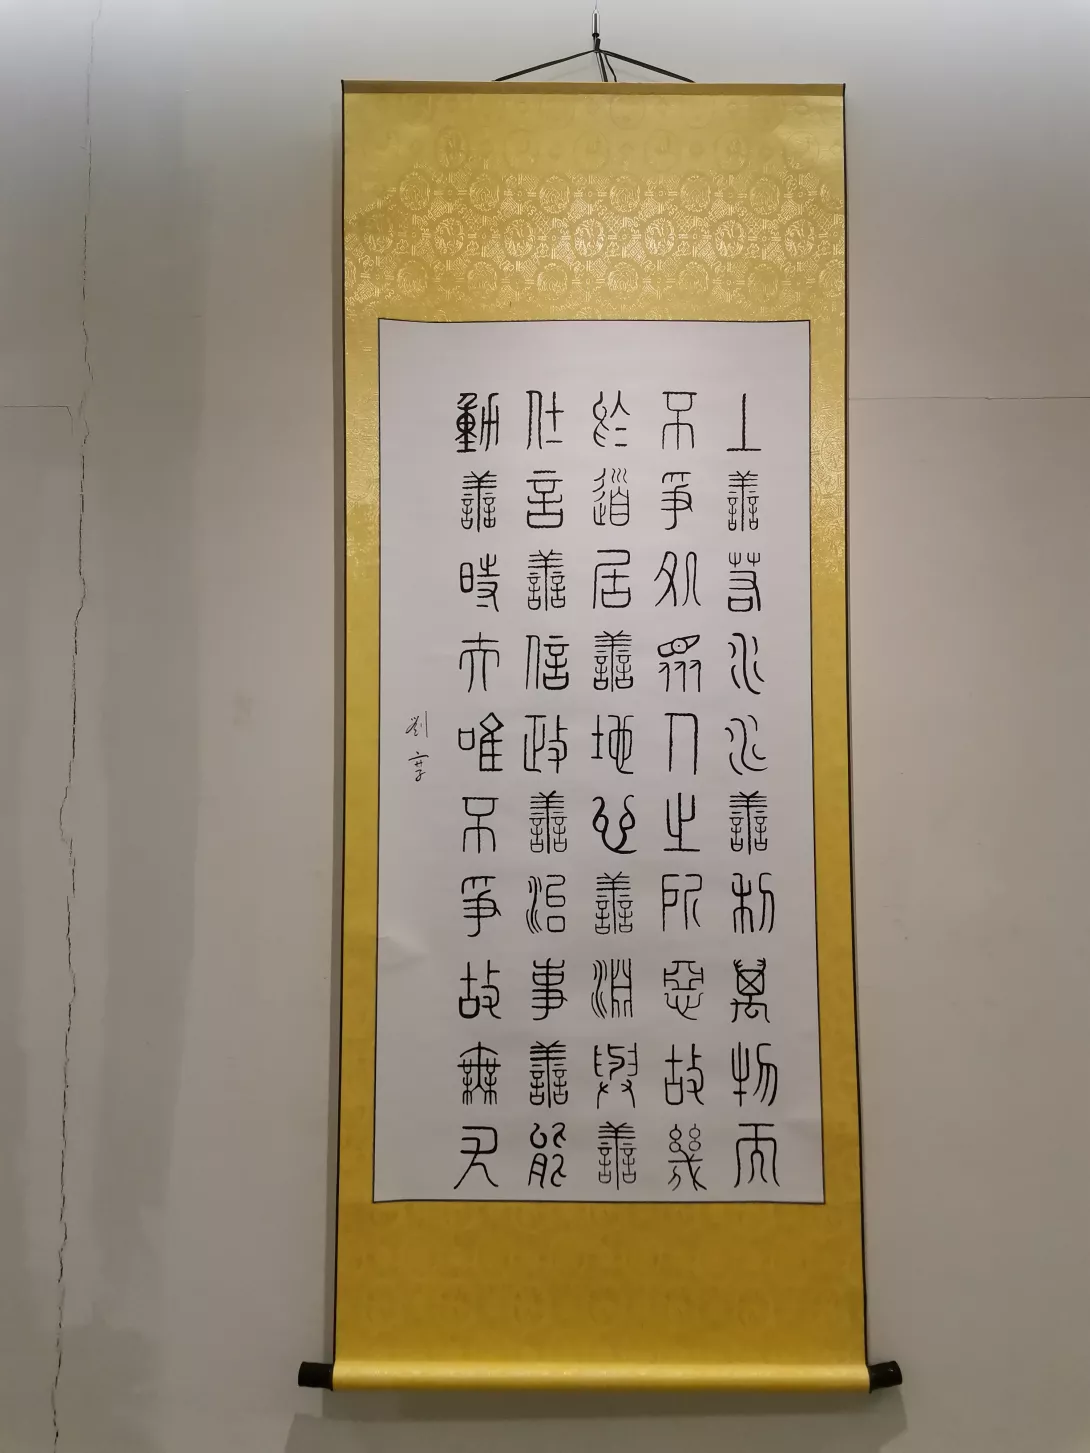 上善若水水善利萬物而
不爭処衆人之所惡故幾
於道居善地心善淵與善
仁言善信政善治事善能
動善時夫唯不爭故無尤
劉